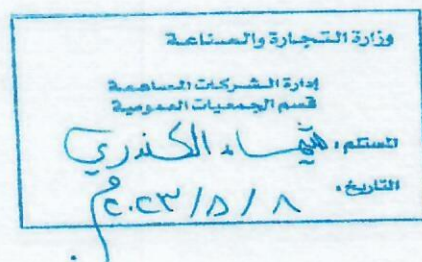 وزارة التجارة والصناعة
إدارة الشركات المساهمة
قسم الجمعيات العمومية
المستلم: شيماء الكندري
التاريخ: ٨ / ٥ / ٢٠٢٣م